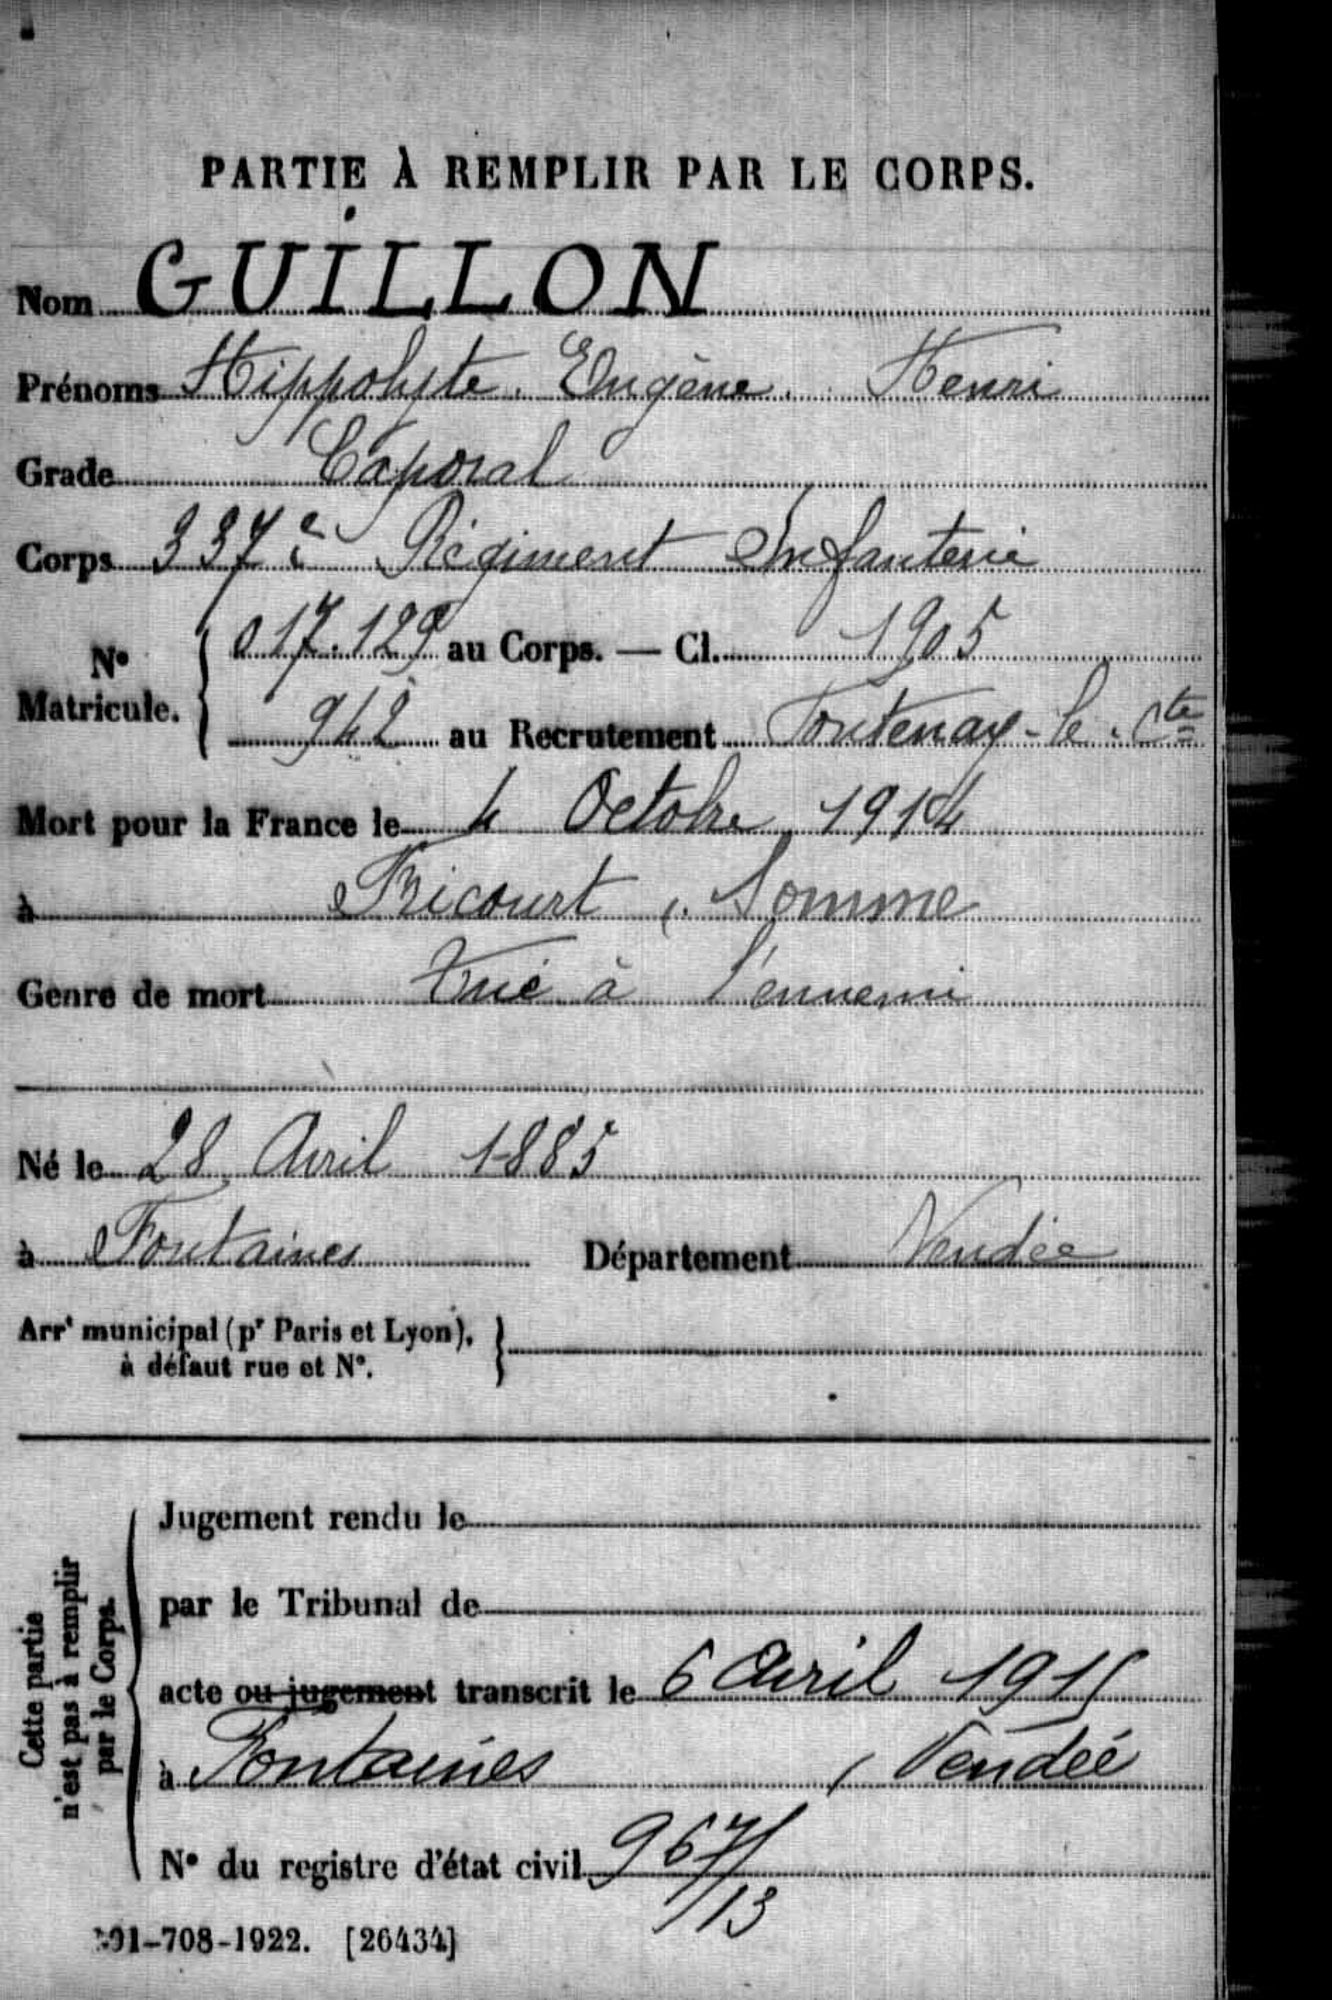 PARTIE À REMPLIR PAR LE CORPS.
Nom GUILLON
Prénoms Hippolyte Eugène Henri
Grade Caporal
Corps 337e Régiment Infanterie
N° Matricule. 017.129 au Corps. — Cl. 1905
942 au Recrutement Fontenay-le-Cte
Mort pour la France le 4 Octobre 1914
à Fricourt, Somme
Genre de mort Tué à l'ennemi
Né le 28 Avril 1885
à Fontaines Département Vendée
Arrt municipal (pr Paris et Lyon),
à défaut rue et N°.
Cette partie
n'est pas à remplir
par le Corps.
Jugement rendu le
par le Tribunal de
acte ou jugement transcrit le 6 Avril 1915
à Fontaines, Vendée
N° du registre d'état civil 967/13
-708-1922. [26434]